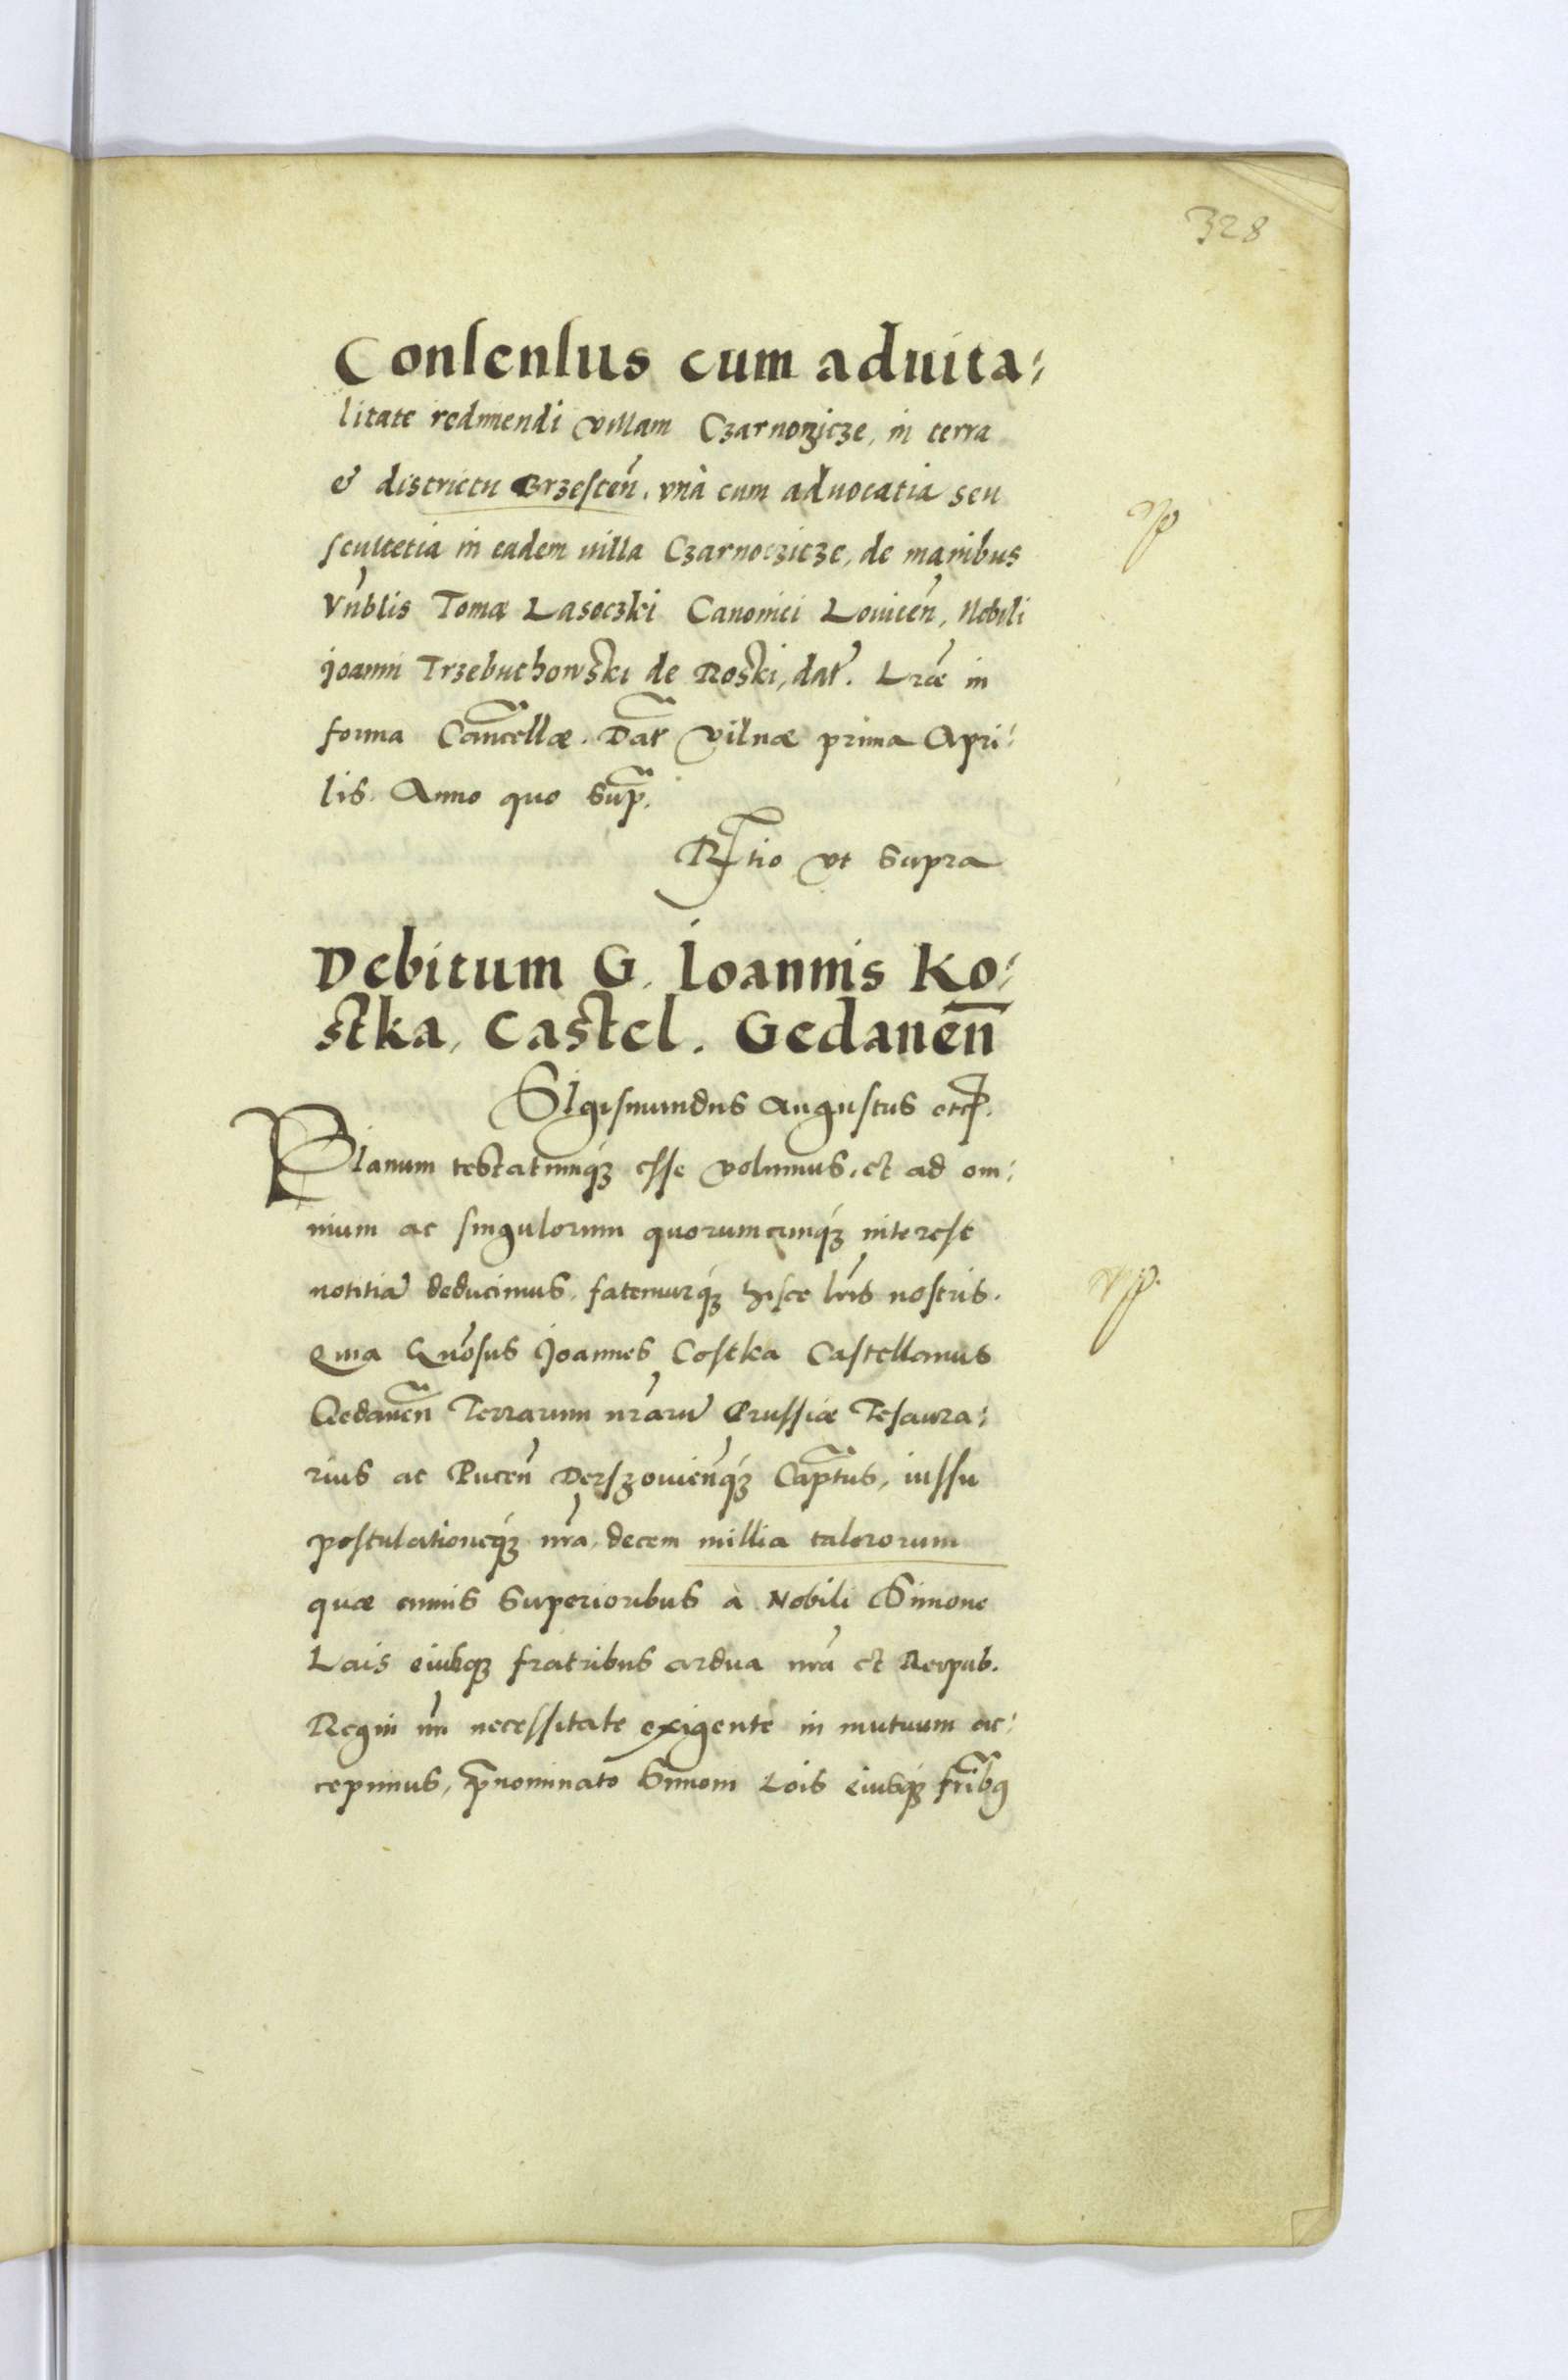 328
Consensus cum aduita:
litate redimendi villam Czarnoczicze, in terra
& districtu Brzesten̄. vnà cum aduocatia seu
scultetia in eadem uilla Czarnoczicze, de manibus
Vn̄blis Tomæ Lasoczki Canonici Louicen̄, Nobili
Joanni Trzebuchowski de Roski, dat̄. Lr̄æ in
forma Cancellæ. Dat̄ Vilnæ prima Apri:
lis. Anno quo sup̄.
R̄tio vt supra
Debitum G. Ioannis Ko:
stka, Castel. Gedanen̄
Sigismundus Augustus etc.
Planum testatumq́ꝫ esse volumus, et ad om:
nium ac singulorum quorumcunq́ꝫ interest
notitiā deducimus, fatemurq́ꝫ hisce lr̄is nostris.
Quia Gn̄osus Joannes Costka Castellanus
Gedanen̄ Terrarum nr̄arū Prussiæ Tesaura:
rius ac Pucen̄ Derszouien̄q́ꝫ Capt̄us, iussu
postulationeq́ꝫ nr̄a, decem millia talerorum
quæ annis superioribus à Nobili Simone
Lois eiusqꝫ fratribus ardua nr̄a et Reipub.
Regni nr̄i necessitate exigente in mutuum ac:
cepimus, p̄nominato Simoni Lois eiusq́ꝫ fr̄ibꝯ